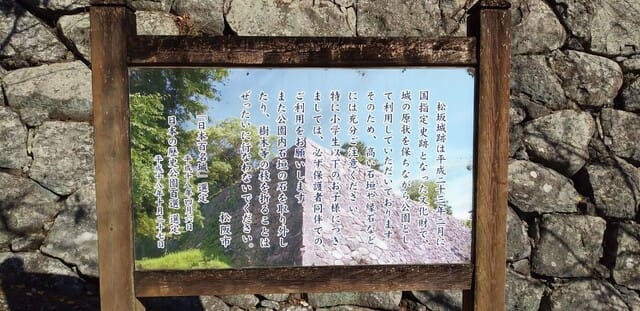 松坂城跡は平成二十三年二月に、
国指定史跡となった文化財で、
城の原状を保ちながら公園とし
て利用していただいております。
そのため、高い石垣や縁石など
には充分ご注意ください。
特に小学生以下のお子様につき
ましては、必ず保護者同伴での
ご利用をお願いします。
また公園内石垣の石を取り外し
たり、樹木等の枝を折ることは
ぜったいに行なわないでください。
松阪市
『日本百名城』選定
平成十八年四月六日
日本の歴史公園百選 選定
平成十八年十月二十七日